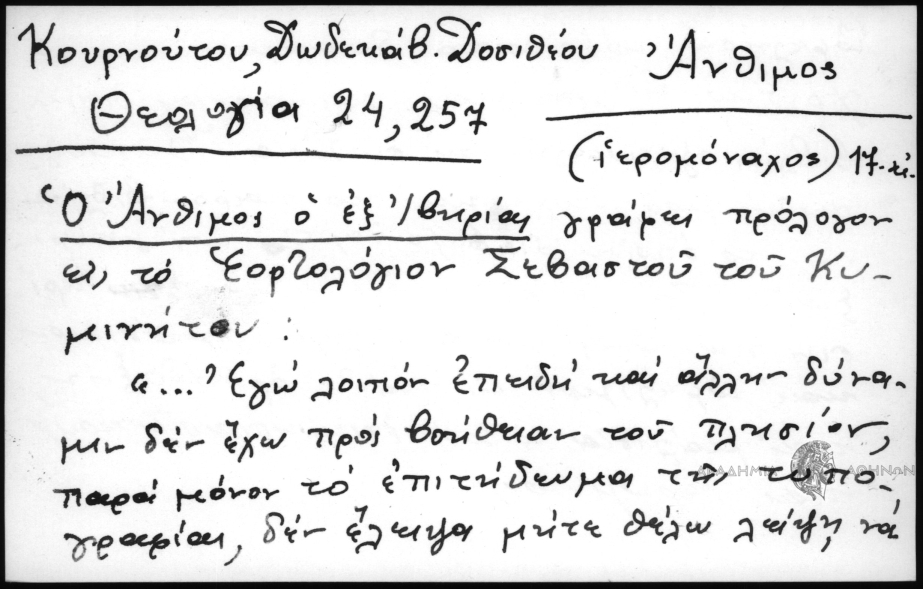 Κουρνούτου, Δωδεκάβ. Δοσιθέου
Θεολογία 24, 257
Ἄνθιμος
(ἱερομόναχος) 17. αἰ.
Ὁ Ἄνθιμος ὁ ἐξ Ἰβηρίας γράφει πρόλογον
εἰς τό Ἑορτολόγιον Σεβαστοῦ τοῦ Κυ-
μινήτου :
"... Ἐγώ λοιπόν ἐπειδή καί ἄλλην δύνα-
μιν δέν ἔχω πρός βοήθειαν τοῦ πλησίον,
παρά μόνον τό ἐπιτήδευμα τῆς τυπο-
γραφίας, δέν ἔλειψα μήτε θέλω λείψῃ, νά
ΑΚΑΔΗΜΙΑ ΑΘΗΝΩΝ